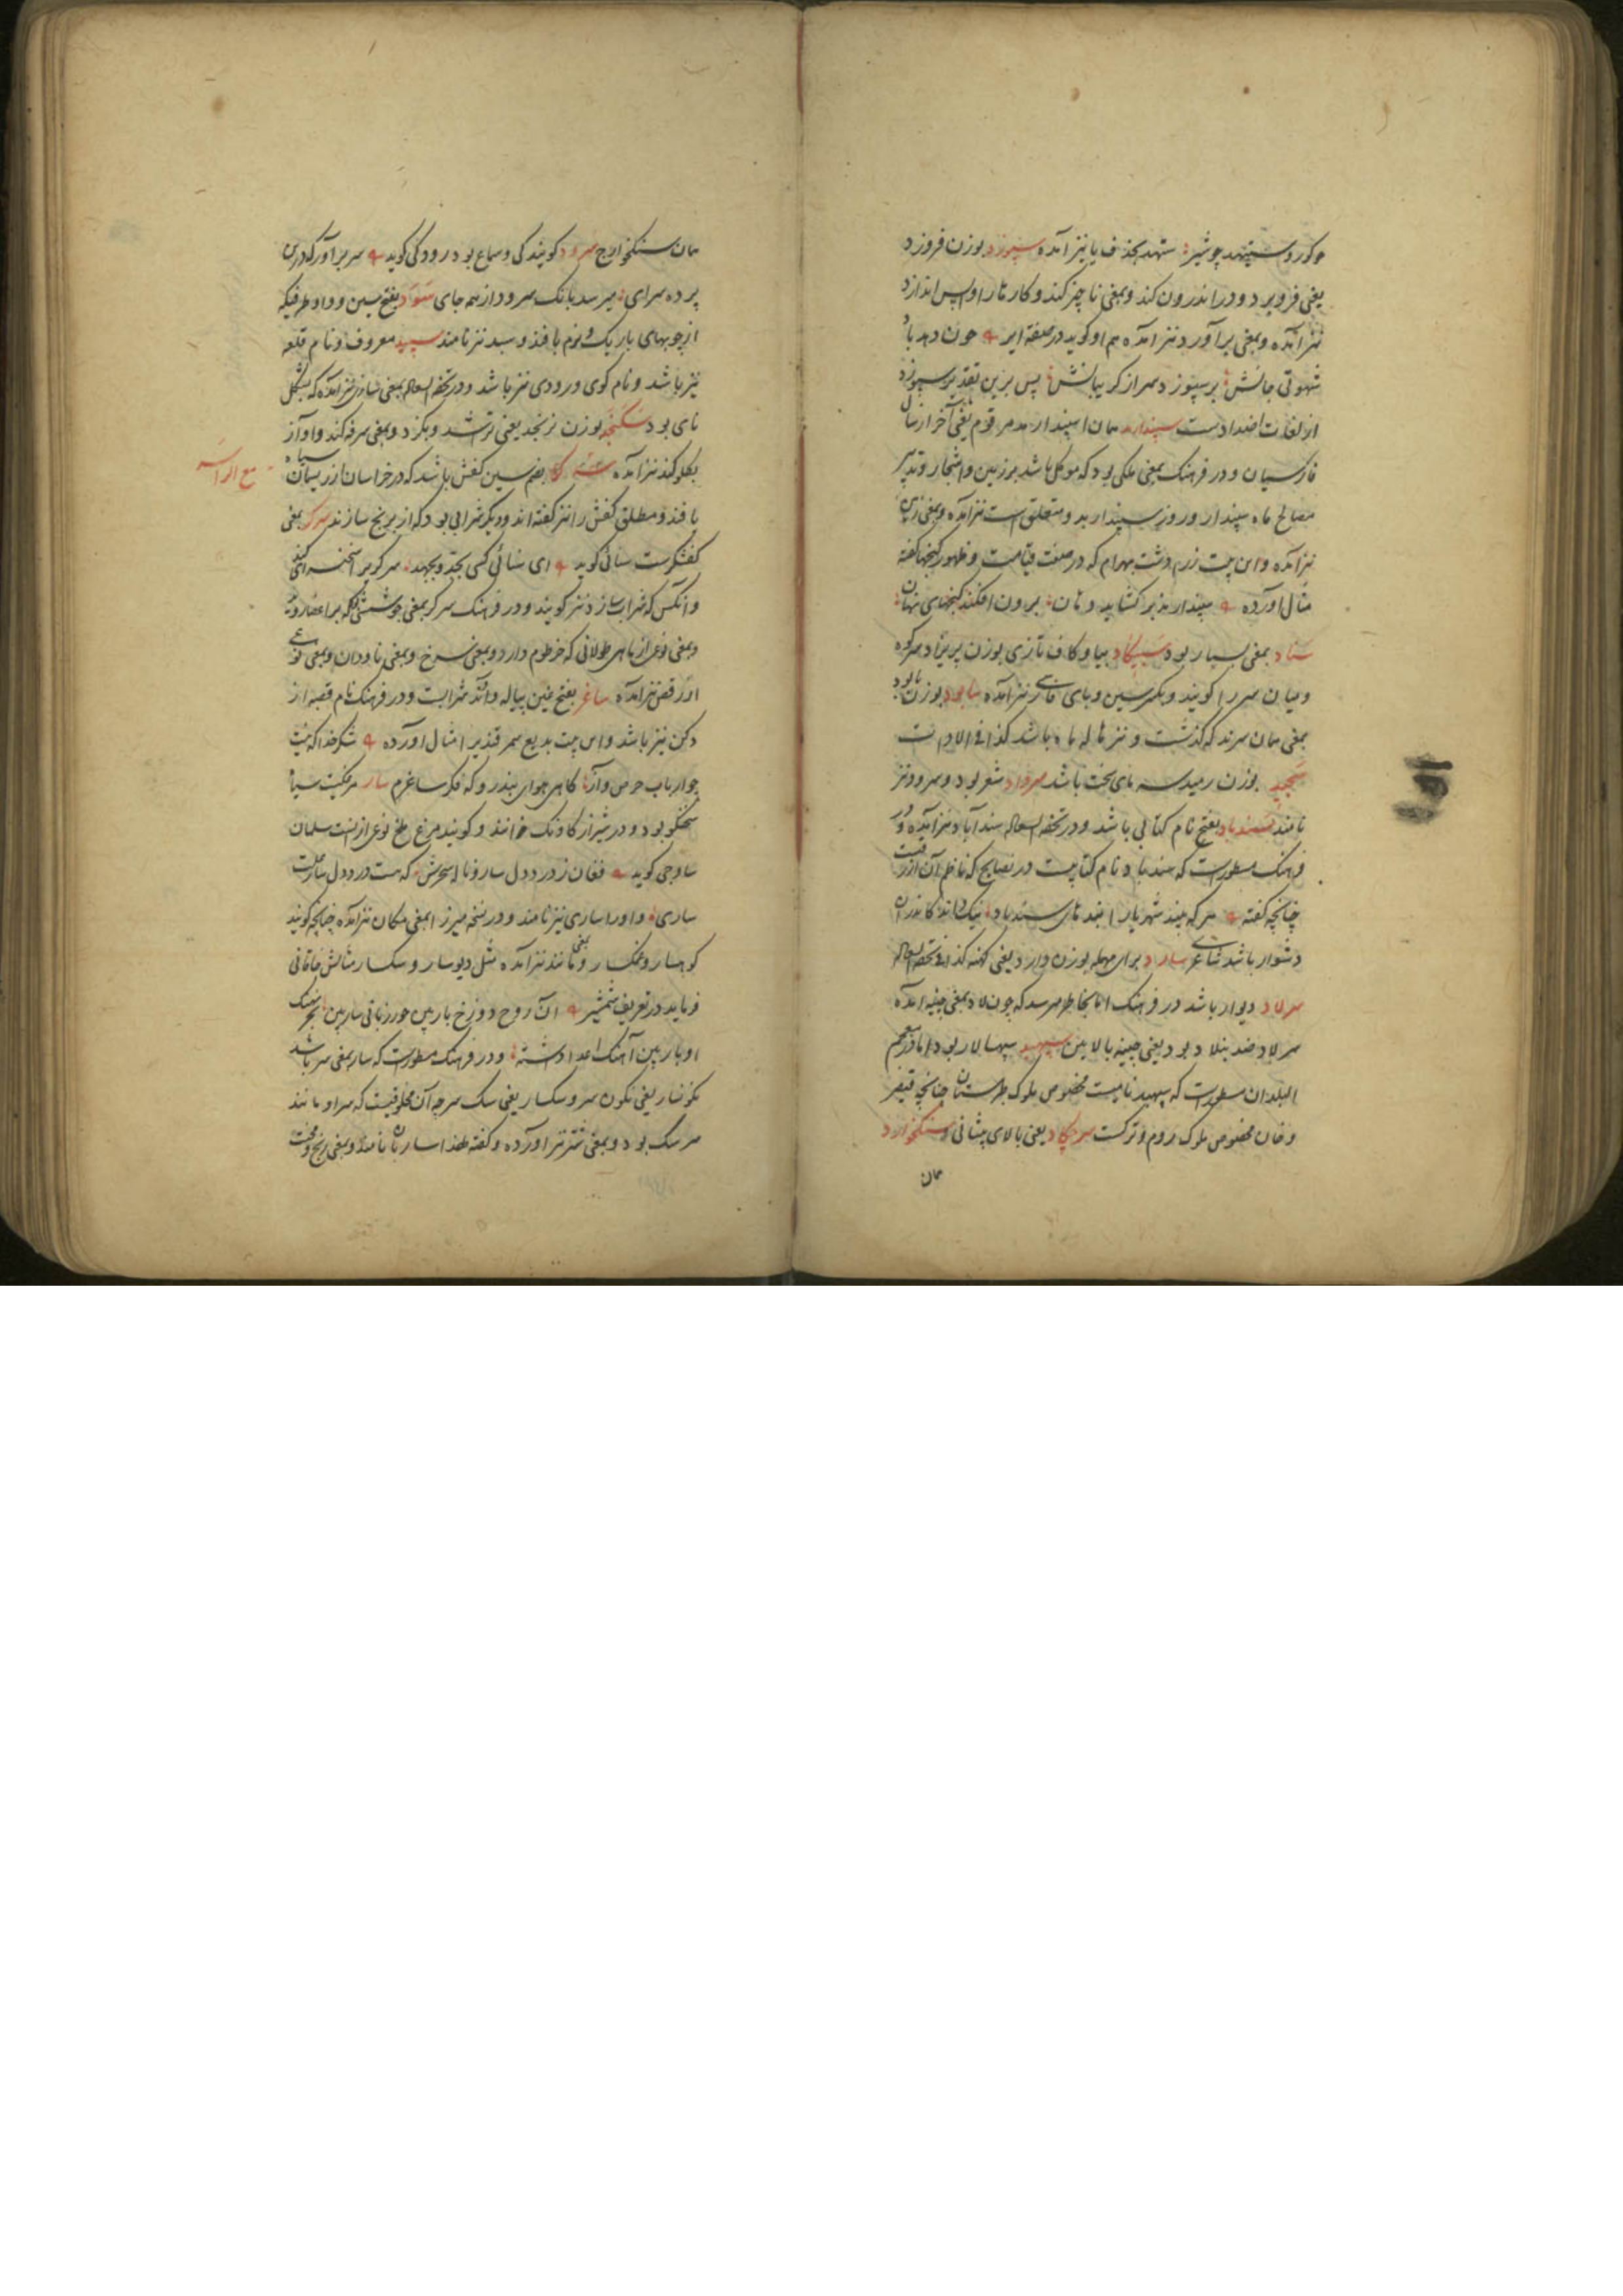 چو کور و ستیهد چو شیر ستهد بحذف یا نیز آمده سپوزد بوزن فروزد
یعنی فرو برد و در اندرون کند و بمعنی ناچیز کند و کارها را واپس اندازد
نیز آمده و بمعنی برآورد نیز آمده هم او کوید در صفة ابر چون دهد باد
شهوتی جانش بر سپوزد سر از کریبانش پس برین تقدیر سپوزد
از لغات اضداد است سپندارمد همان اسپندارمد مرقوم یعنی آخر از سال
فارسیان و در فرهنک بمعنی ملکی بود که موکل باشد بر زمین و اشجار و تدبیر
مصالح ماه سپندار و روز سپندار بدو متعلق است نیز آمده و بمعنی زمین
نیز آمده و این بیت زردشت بهرام که در صفت قیامت و ظهور کنجها کفته
مثال آورده سپندارمذ بر کشاید دهان برون افکند کنجهای نهان
ستاد بمعنی بسیار بود سپیکاد بیا و کاف تازی بوزن پریزاد سر کوه
و میان سر را کویند و بکسر سین و بای فارسی نیز آمده شابود بوزن نابود
بمعنی همان سرند که کذشت و نیز هاله ماه باشد کذا فی الادات
سجید بوزن رمید سرمای سخت باشد سرواد شعر بود و سرود نیز
نامند سندباد بفتح نام کتابی باشد و در تحفة السعاده سندآباد نیز آمده و در
فرهنک مسطور است که سندباد نام کتابیست در نصایح که ناظم آن ازرقیست
چنانچه کفته هر که بیند شهریارا پندهای سندباد نیک داند کاندر آن
دشوار باشد شاعری سارد برای مهمله بوزن وارد یعنی کهنه کذا فی تحفة السعاده
سرلاد دیوار باشد در فرهنک اما بخاطر میرسد که چون لاد بمعنی چینه آمده
سرلاد ضد بنلاد بود یعنی چینه بالایین سپهبد سپهسالار بود اما در معجم
البلدان مسطور است که سپهبد نامیست مخصوص ملوک طبرستان چنانچه قیصر
و خان مخصوص ملوک روم و ترکست سرچکاد یعنی بالای پیشانی و سنکخوارد
همان
همان سنکخوارج سرود کویندکی و سماع بود رودکی کوید سر برآور که درین
پرده سرای میرسد بانک سرود از همه جای سود بفتح سین و واو ظرفیکه
از چوبهای باریک و نرم بافند و سبد نیز نامند سپید معروف و نام قلعه
نیز باشد و نام کوی و رودی نیز باشد و در تحفة السعاده بمعنی سازی نیز آمده که بشکل
نای بود سکنجد بوزن نرنجد یعنی تراشد و بکزد و بمعنی سرفه کند و آواز
بکلو کند نیز آمده مع الراء بضم سین کفش باشد که در خراسان از ریسمان سیاه
بافند و مطلق کفش را نیز کفته اند و دیکر شرابی بود که از برنج سازند سرکر بمعنی
کفشکرست سنائی کوید ای سنائی کسی بجد و بجهد
و آنکس که شراب سازد نیز کویند و در فرهنک سرکر بمعنی جوششی که بر اعضا رود
و بمعنی نوعی از ماهی طولانی که خرطوم دارد و بمعنی سرخ و بمعنی ناودان و بمعنی نوعی
از رقص نیز آمده ساغر بفتح غین پیاله و آوند شرابست و در فرهنک نام قصبه از
دکن نیز باشد و این بیت بدیع سمرقندی را مثال آورده شکر خدا که نیست
چو ارباب حرص و آز کاهی هوای بندر و که فکر ساغرم سار مرغیست سیاه
سخنکو بود و در شیراز کاونک خوانند و کویند مرغ ملخ نوعی از نست سلمان
ساوجی کوید فغان ز درد دل سار و ناله سحرش که هست درد دل سار از
ساری و او را ساری نیز نامند و در نسخه میرزا بمعنی مکان نیز آمده چنانچه کویند
کوهسار و نمکسار و بمعنی مانند نیز آمده مثل دیوسار و سکسار مثالش خاقانی
فرماید در تعریف شمشیر آن روح دوزخ بار بین حور زبانی سار بین بحر نهنک
اوبار بین آهنک اعدا داشته و در فرهنک مسطور است که سار بمعنی سر باشد
نکونسار یعنی نکون سر و سکسار یعنی سک سر چه آن مخلوقیست که سر او مانند
سر سک بود و بمعنی شتر نیز آورده و کفته لهذا ساربان نامند و بمعنی رنج و محنت
مع الراء